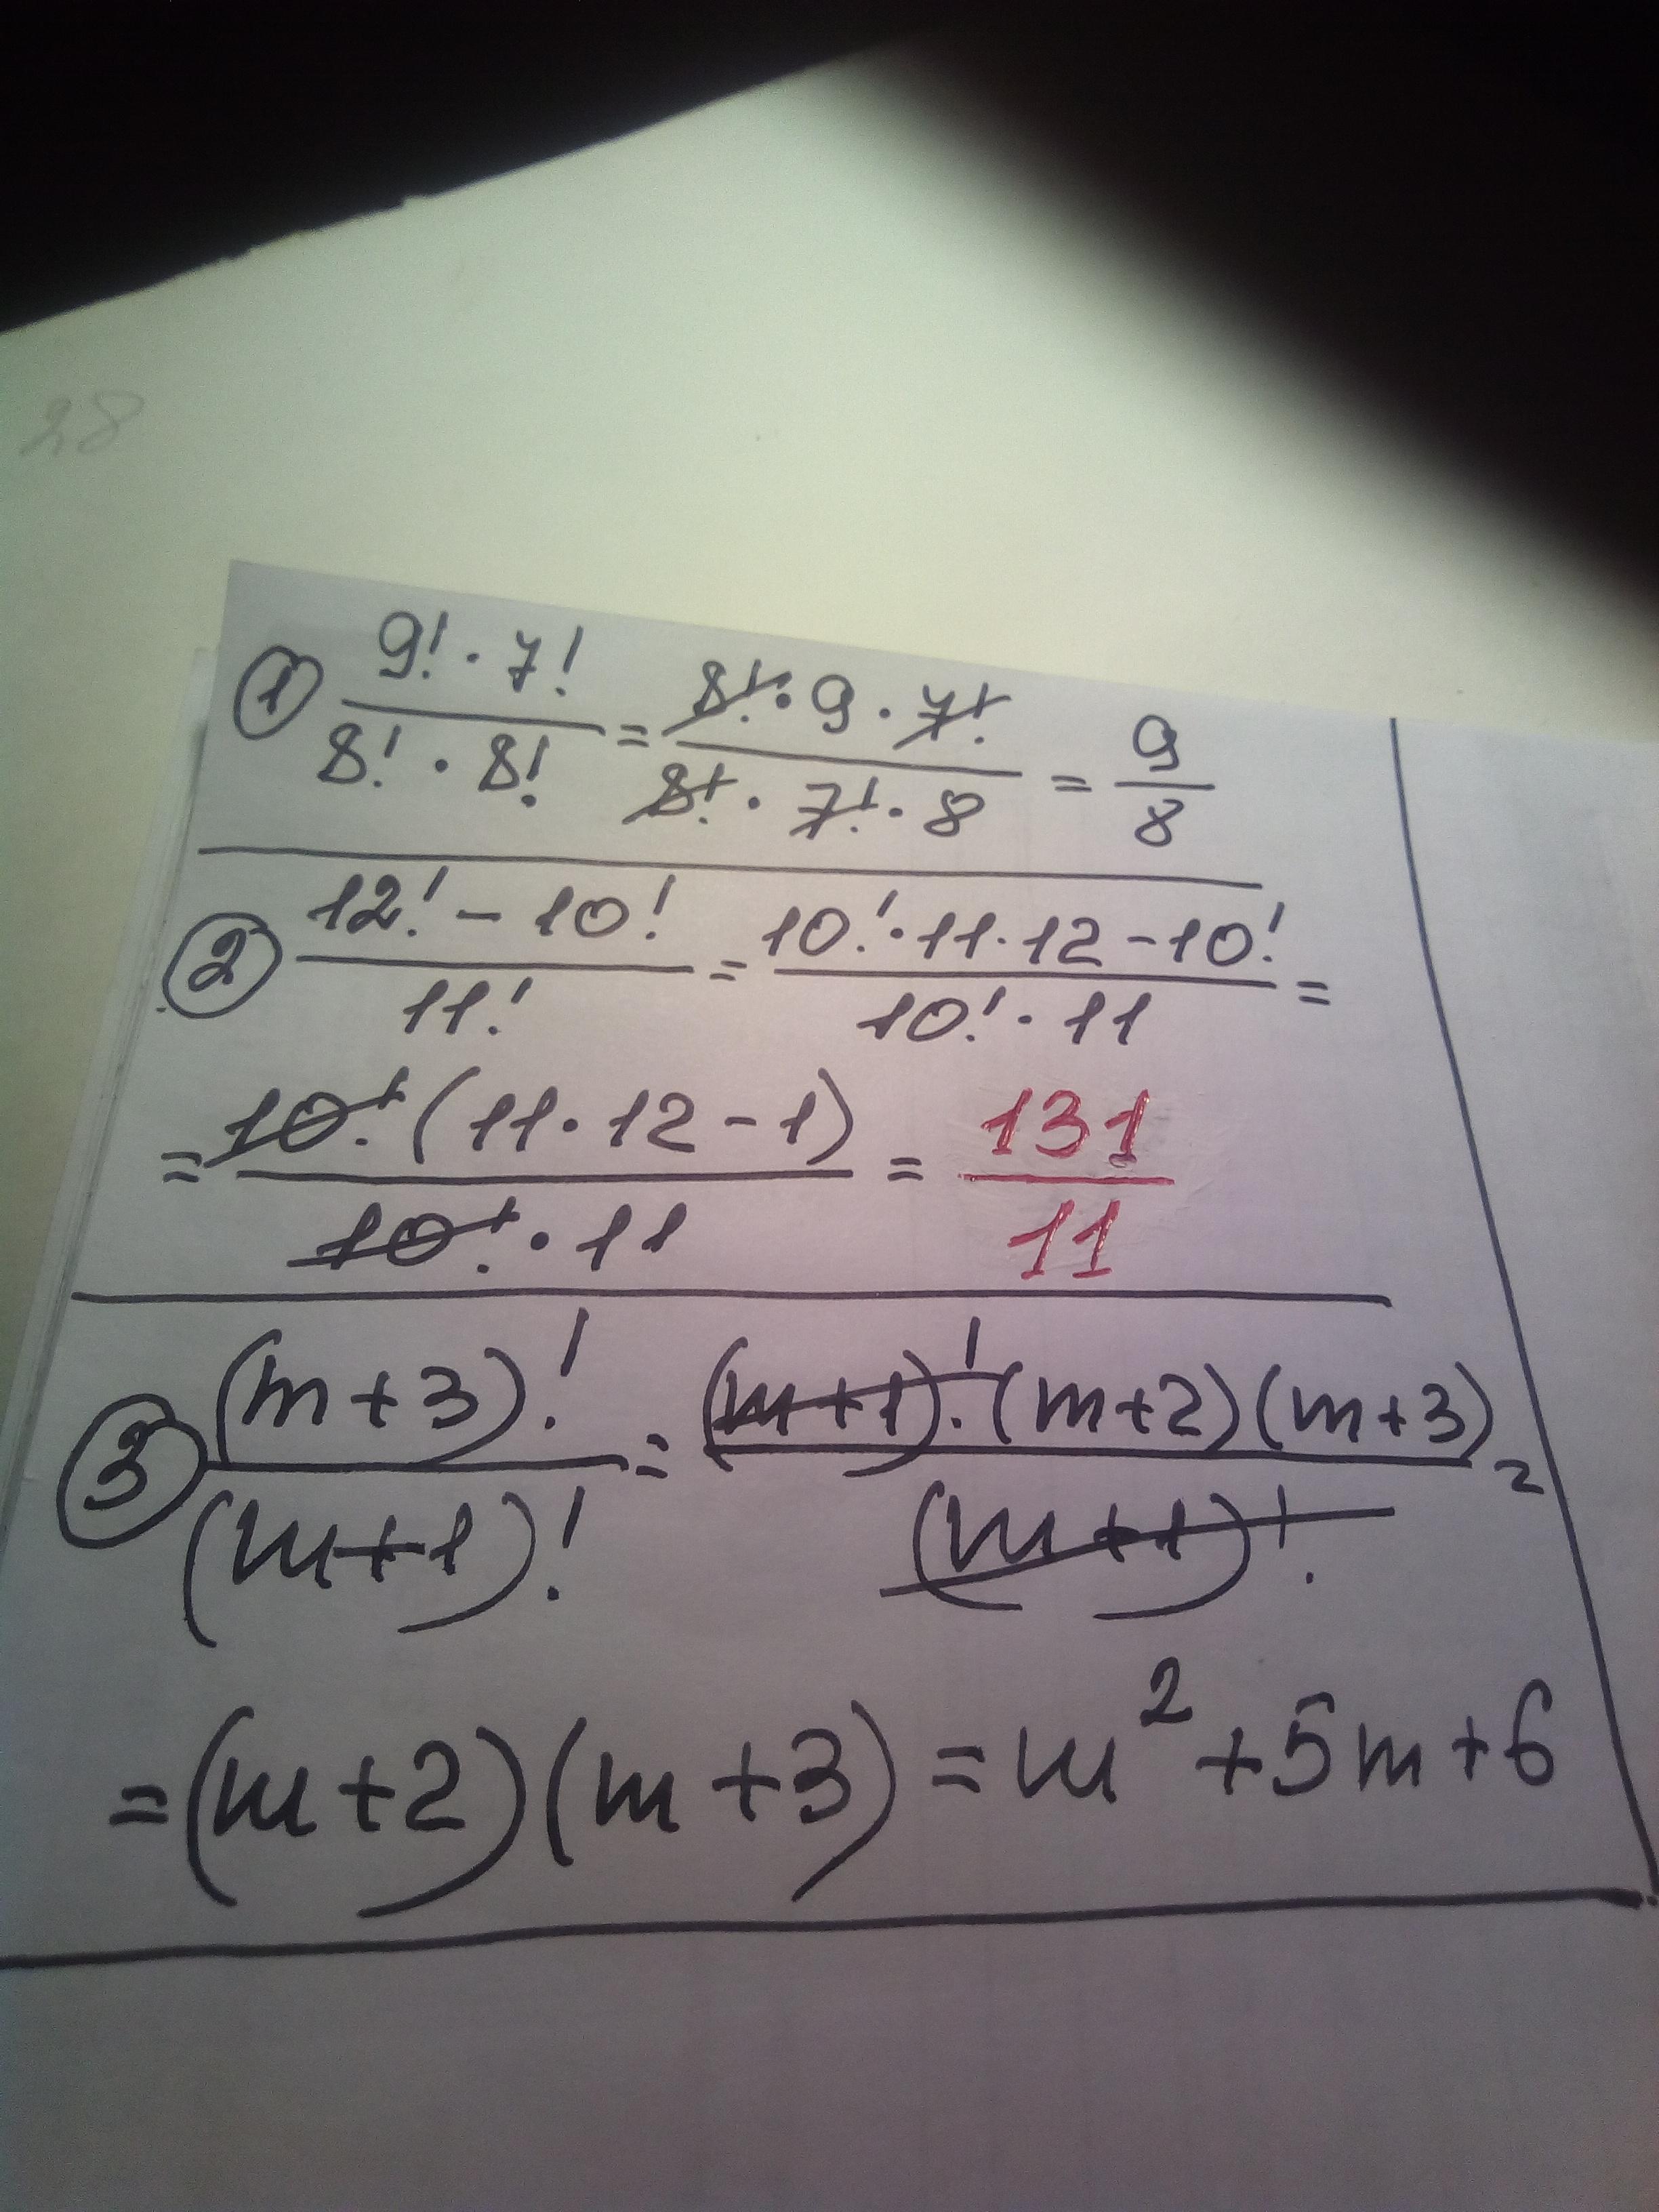 28
① 9! · 7! / 8! · 8! = 8! · 9 · 7! / 8! · 7! · 8 = 9/8
② 12! - 10! / 11! = 10! · 11 · 12 - 10! / 10! · 11 =
= 10! (11 · 12 - 1) / 10! · 11 = 131/11
③ (m+3)! / (m+1)! = (m+1)! (m+2)(m+3) / (m+1)! =
= (m+2)(m+3) = m² + 5m + 6